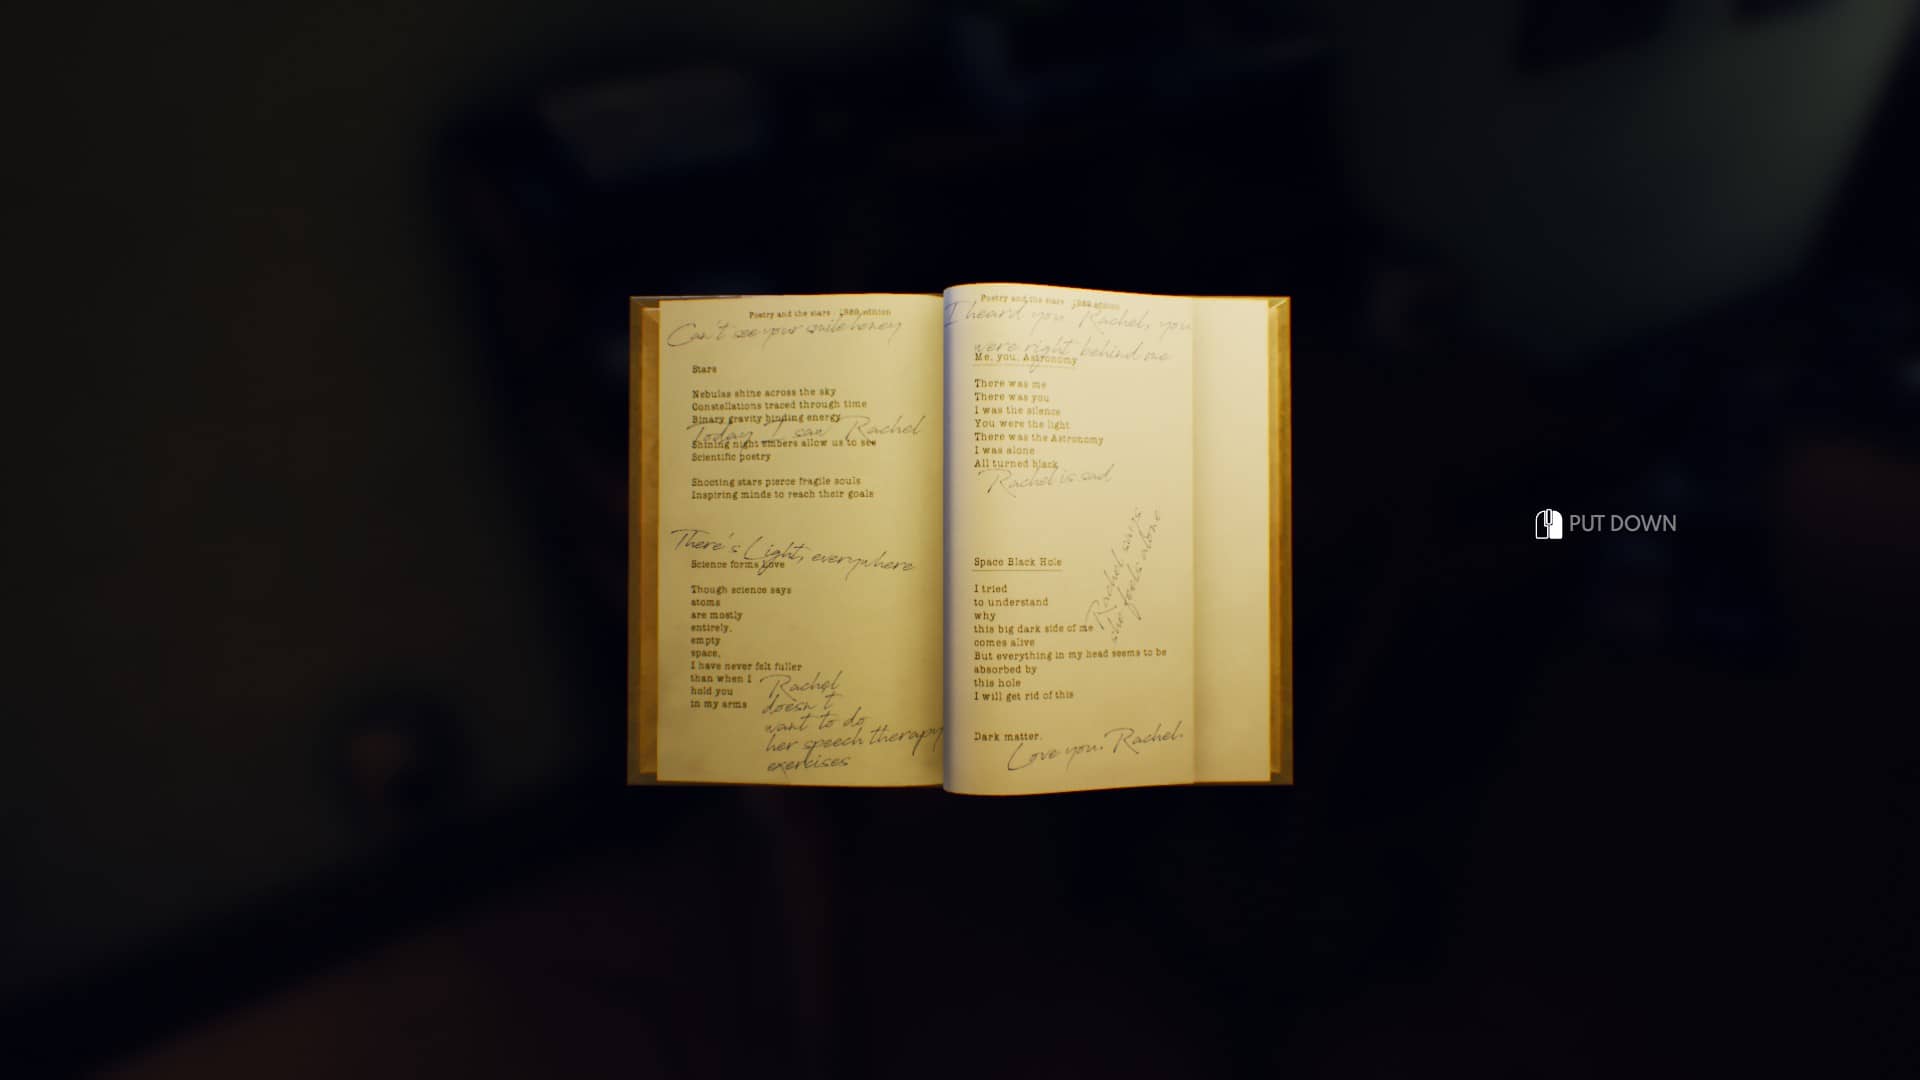 Poetry and the stars - 1989 edition
Can't see your smile honey
Stars
Nebulas shine across the sky
Constellations traced through time
Binary gravity binding energy
Today I saw Rachel
Shining night embers allow us to see
Scientific poetry
Shooting stars pierce fragile souls
Inspiring minds to reach their goals
There's Light, everywhere
Science forms Love
Though science says
atoms
are mostly
entirely,
empty
space,
I have never felt fuller
than when I
hold you
in my arms
Rachel
doesn't
want to do
her speech therapy
exercises
Poetry and the stars - 1989 edition
I heard you Rachel, you
were right behind me
Me, you, Astronomy
There was me
There was you
I was the silence
You were the light
There was the Astronomy
I was alone
All turned black
Rachel is sad
Rachel says
she feels alone
Space Black Hole
I tried
to understand
why
this big dark side of me
comes alive
But everything in my head seems to be
absorbed by
this hole
I will get rid of this
Dark matter.
Love you, Rachel.
PUT DOWN